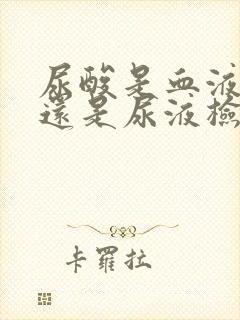 尿酸是血液
還是尿液檢
卡羅拉